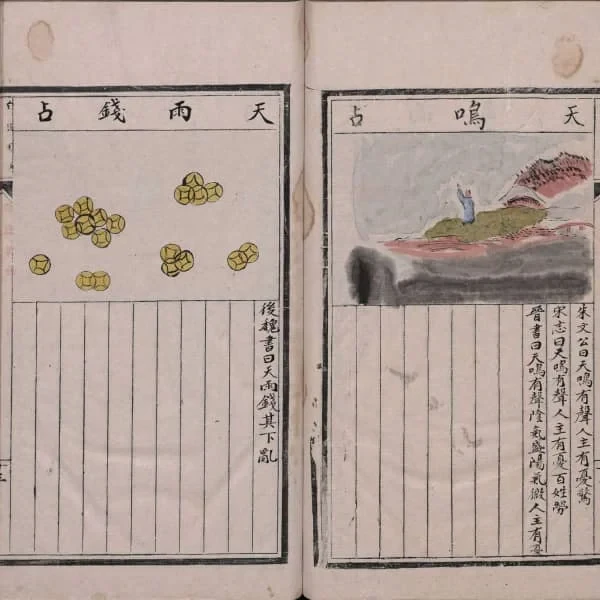 天鳴占
朱文公曰天鳴有聲人主有憂驚
宋志曰天鳴有聲人主有憂百姓勞
晉書曰天鳴有聲隂氣盛陽氣微人主有憂
天雨錢占
後魏書曰天雨錢其下亂